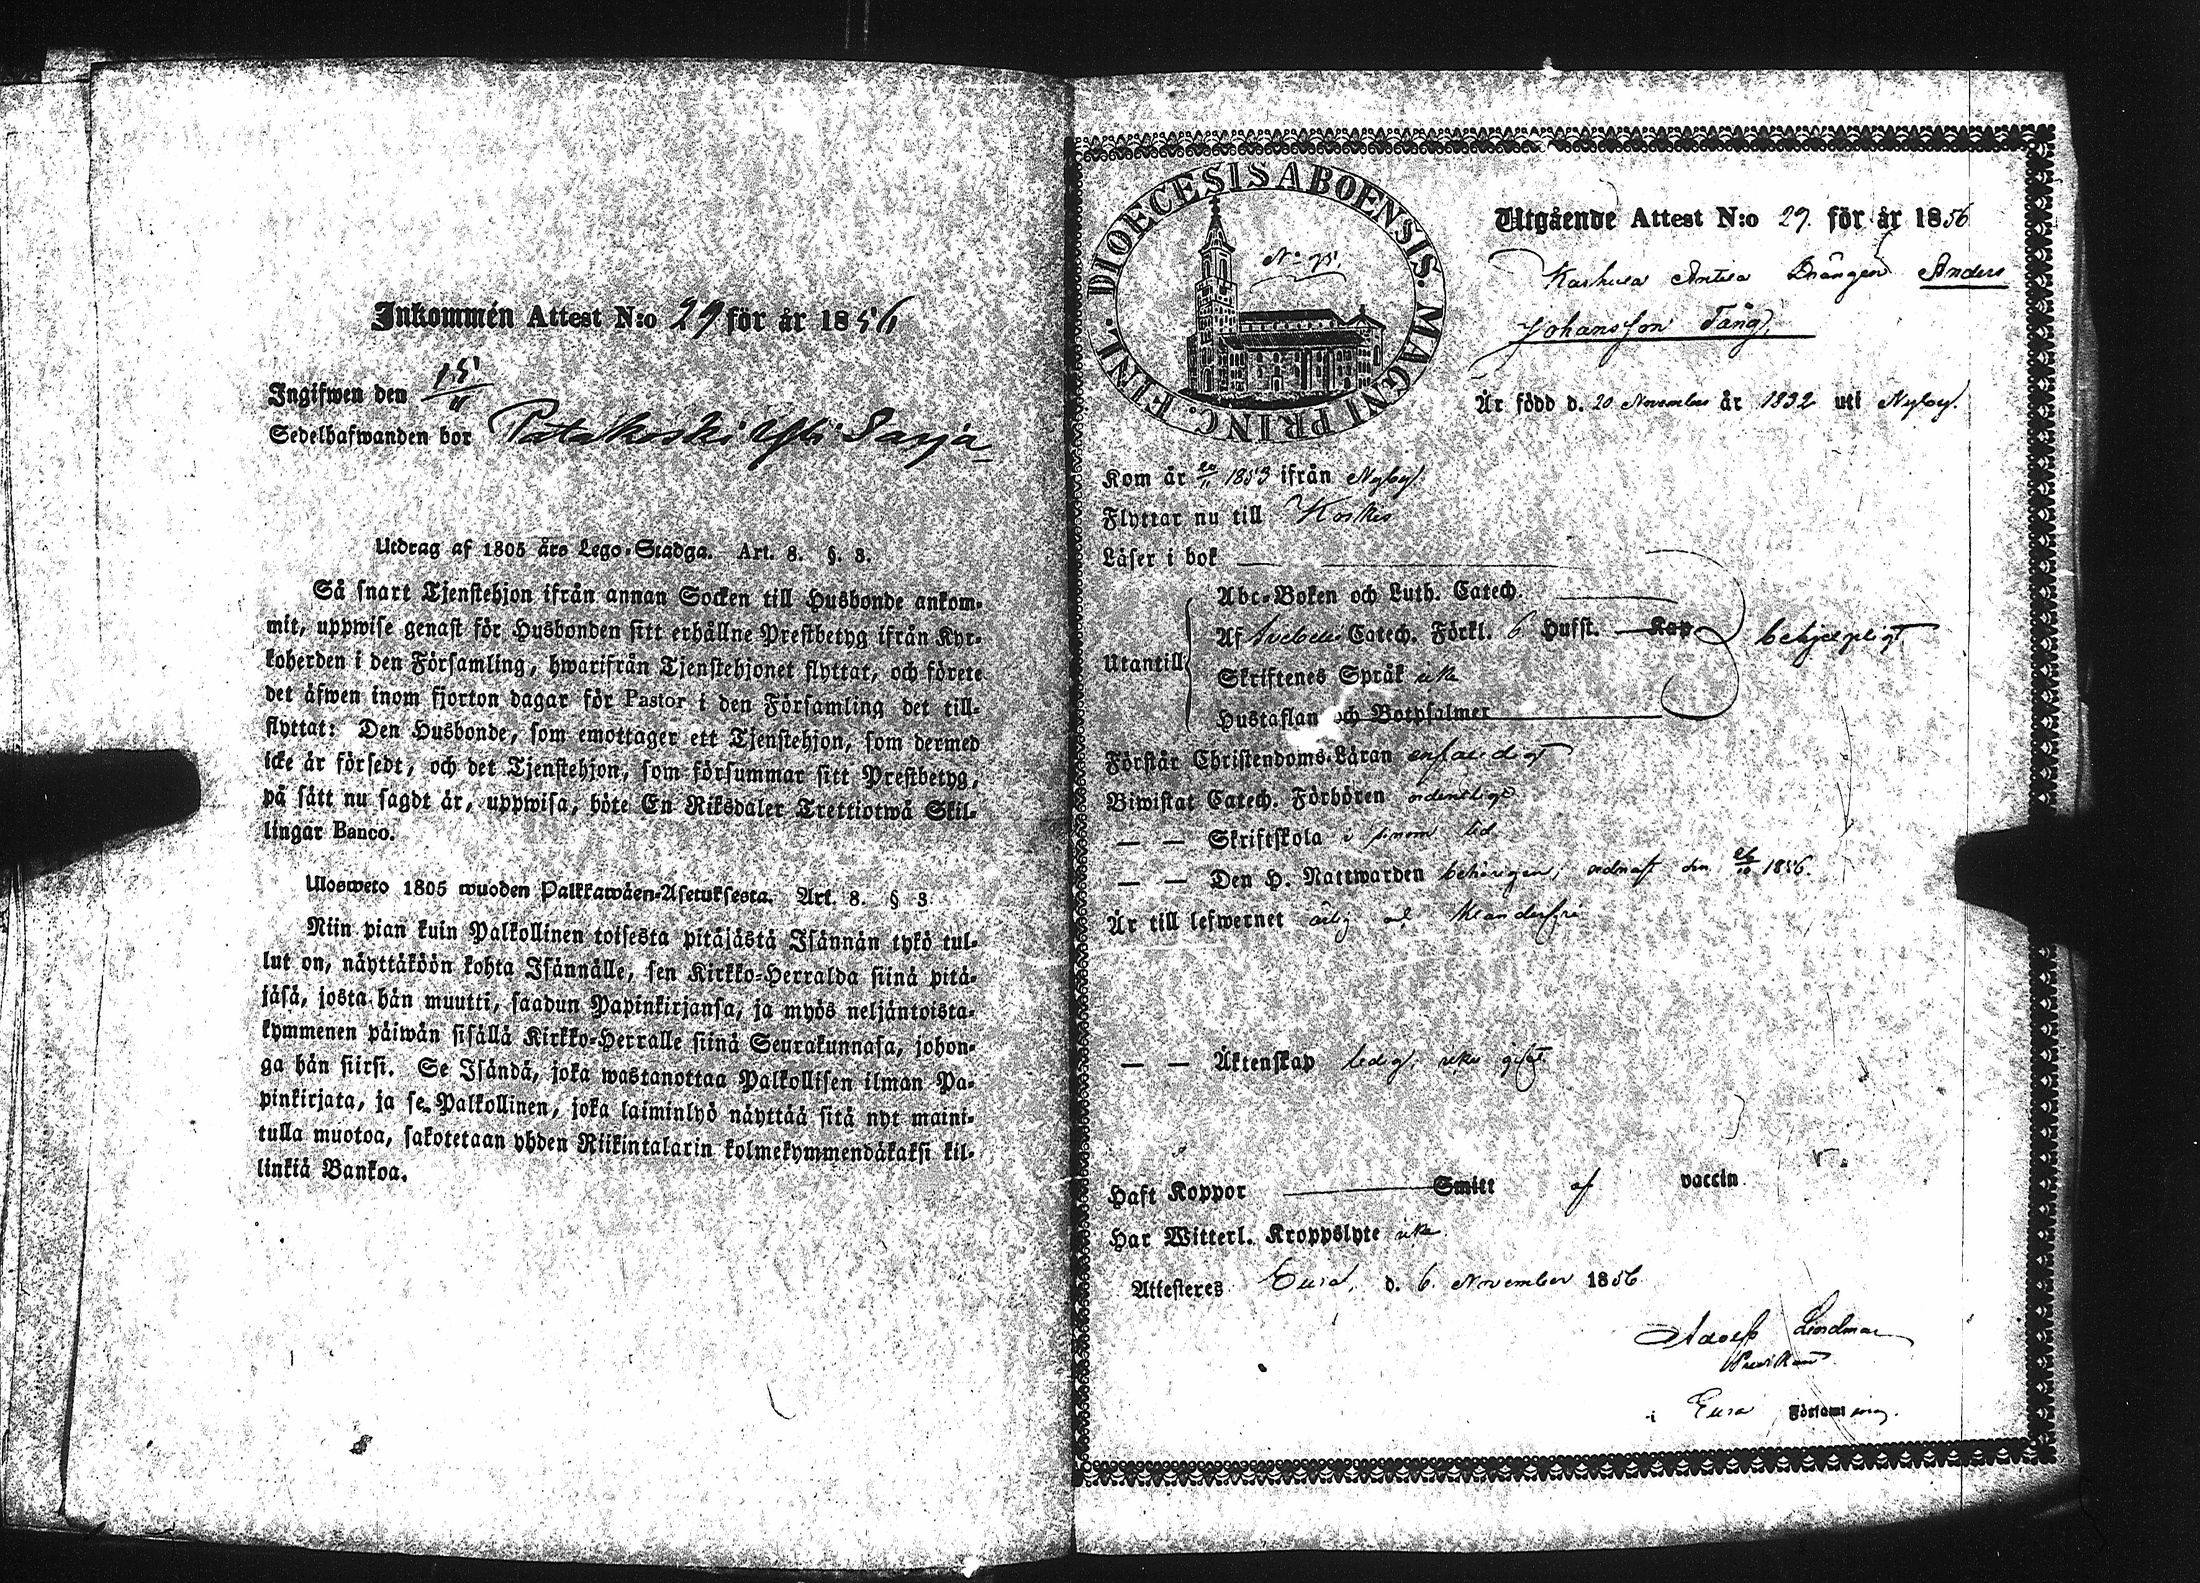 Inkommén Attest N:o 29 för år 1856
Ingifwen den 15/11
Sedelhafwanden bor Patakoski Yli Sarja
Utdrag af 1805 års Lego-Stadga. Art. 8. §. 3.
Så snart Tjenstehjon ifrån annan Socken till Husbonde ankom-
mit, uppwise genast för Husbonden sitt erhållne Prestbetyg ifrån Kyr-
koherden i den Församling, hwarifrån Tjenstehjonet flyttat, och förete
det äfwen inom fjorton dagar för Pastor i den Församling det till-
flyttat: Den Husbonde, som emottager ett Tjenstehjon, som dermed
icke är försedt, och det Tjenstehjon, som försummar sitt Prestbetyg,
på sätt nu sagdt är, uppwisa, böte En Riksdaler Trettiotwå Skil-
lingar Banco.
Ulosweto 1805 wuoden Palkkawäen-Asetuksesta. Art. 8. § 3.
Niin pian kuin Palkollinen toisesta pitäjästä Isännän tykö tul-
lut on, näyttäköön kohta Isännälle, sen Kirkko-Herralda siinä pitä-
jäsä, josta hän muutti, saadun Papinkirjansa, ja myös neljäntoista-
kymmenen päiwän sisällä Kirkko-Herralle siinä Seurakunnasa, johon-
ga hän siirsi. Se Isändä, joka wastanottaa Palkollisen ilman Pa-
pinkirjata, ja se Palkollinen, joka laiminlyö näyttää sitä nyt maini-
tulla muotoa, sakotetaan yhden Riikintalarin kolmekymmendäkaksi kil-
linkiä Bankoa.
FINL. DIOECESIS ABOENSIS. MAGNI PRINC.
N:o 75
Utgående Attest N:o 29. för år 1856
Drängen Anders
Johansson Täng
Är född d. 20 November år 1832 uti Nyby.
Kom år 20/11 1853 ifrån Nyby
Flyttar nu till Koskis
Läser i bok
Abc-Boken och Luth. Catech.
Utantill Af Svebelii Catech. Förkl. 6 Hufst. Kap behjelpligt
Skriftenes Språk icke
Hustaflan och Botpsalmer
Förstår Christendoms-Läran enfaldigt
Biwistat Catech. Förhören ordentligt
— — Skriftskola i sinom tid
— — Den H. Nattwarden behörigen, sednast den 26/10 1856.
Är till lefwernet ärlig och klanderfri
— — Äktenskap ledig, icke gift
Haft Koppor Smitt af vaccin
Har Witterl. Kroppslyte icke
Attesteres Eura, d. 6. November 1856.
Adolf Lindman
i Eura Församling.